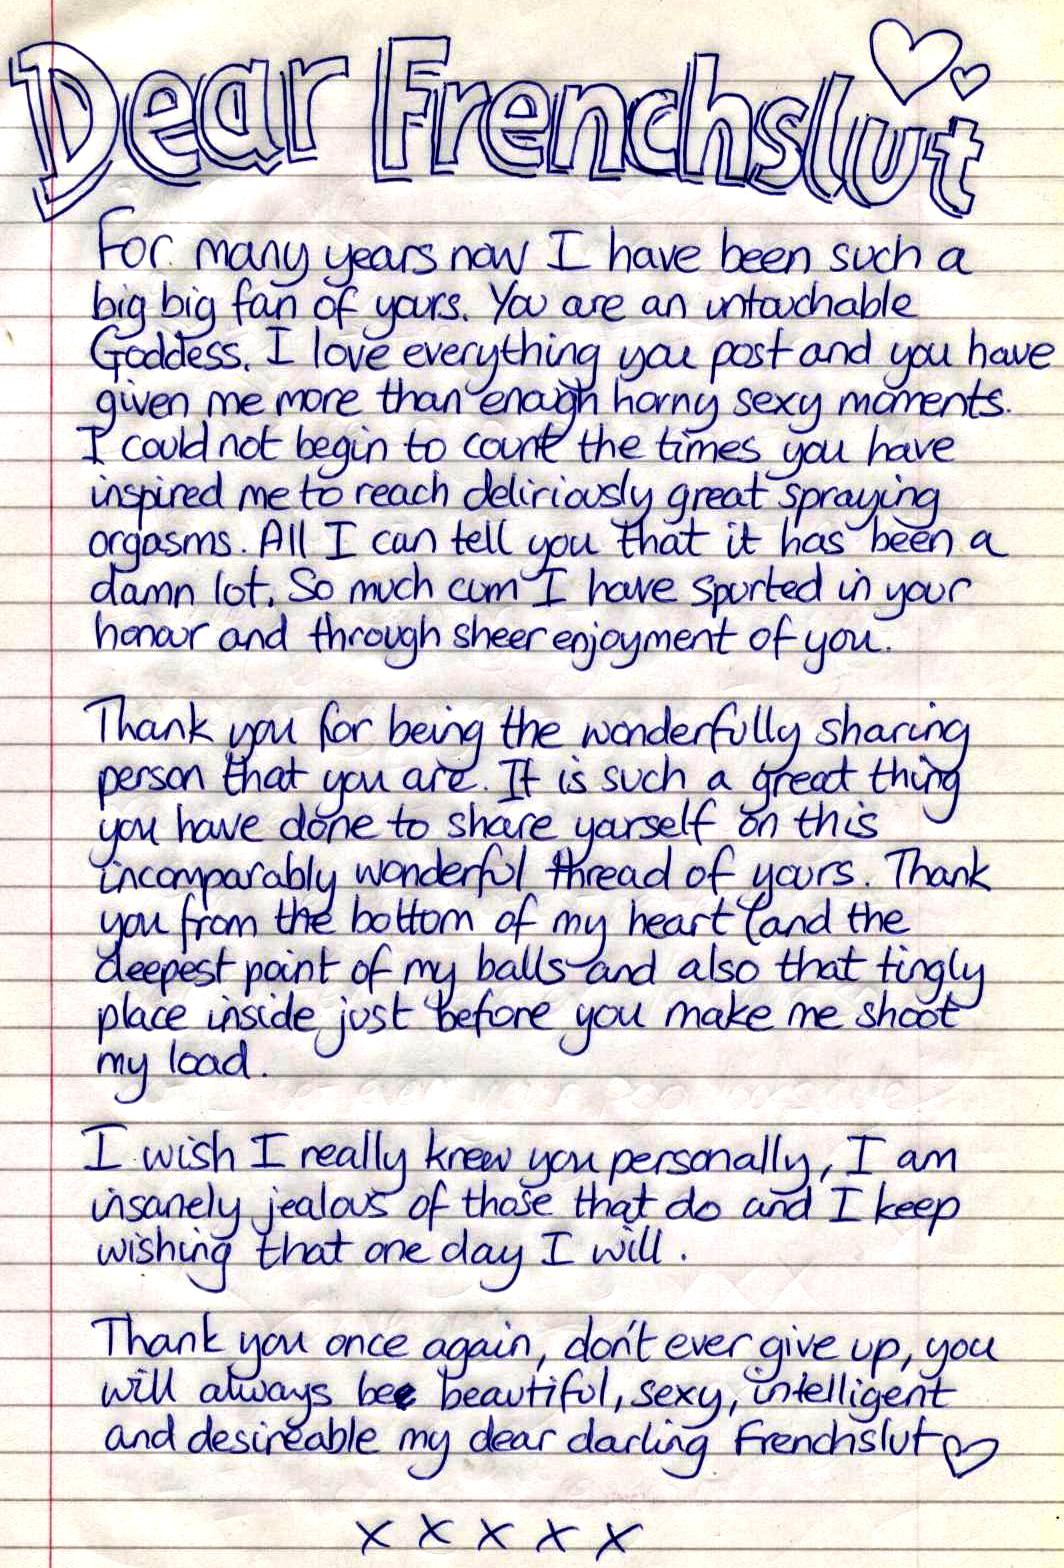 Dear Frenchslut
For many years now I have been such a
big big fan of yours. You are an untouchable
Goddess. I love everything you post and you have
given me more than enough horny sexy moments.
I could not begin to count the times you have
inspired me to reach deliriously great spraying
orgasms. All I can tell you that it has been a
damn lot. So much cum I have spurted in your
honour and through sheer enjoyment of you.
Thank you for being the wonderfully sharing
person that you are. It is such a great thing
you have done to share yourself on this
incomparably wonderful thread of yours. Thank
you from the bottom of my heart (and the
deepest point of my balls and also that tingly
place inside just before you make me shoot
my load.
I wish I really knew you personally, I am
insanely jealous of those that do and I keep
wishing that one day I will.
Thank you once again, don't ever give up, you
will always bee beautiful, sexy, intelligent
and desireable my dear darling Frenchslut
x x x x x